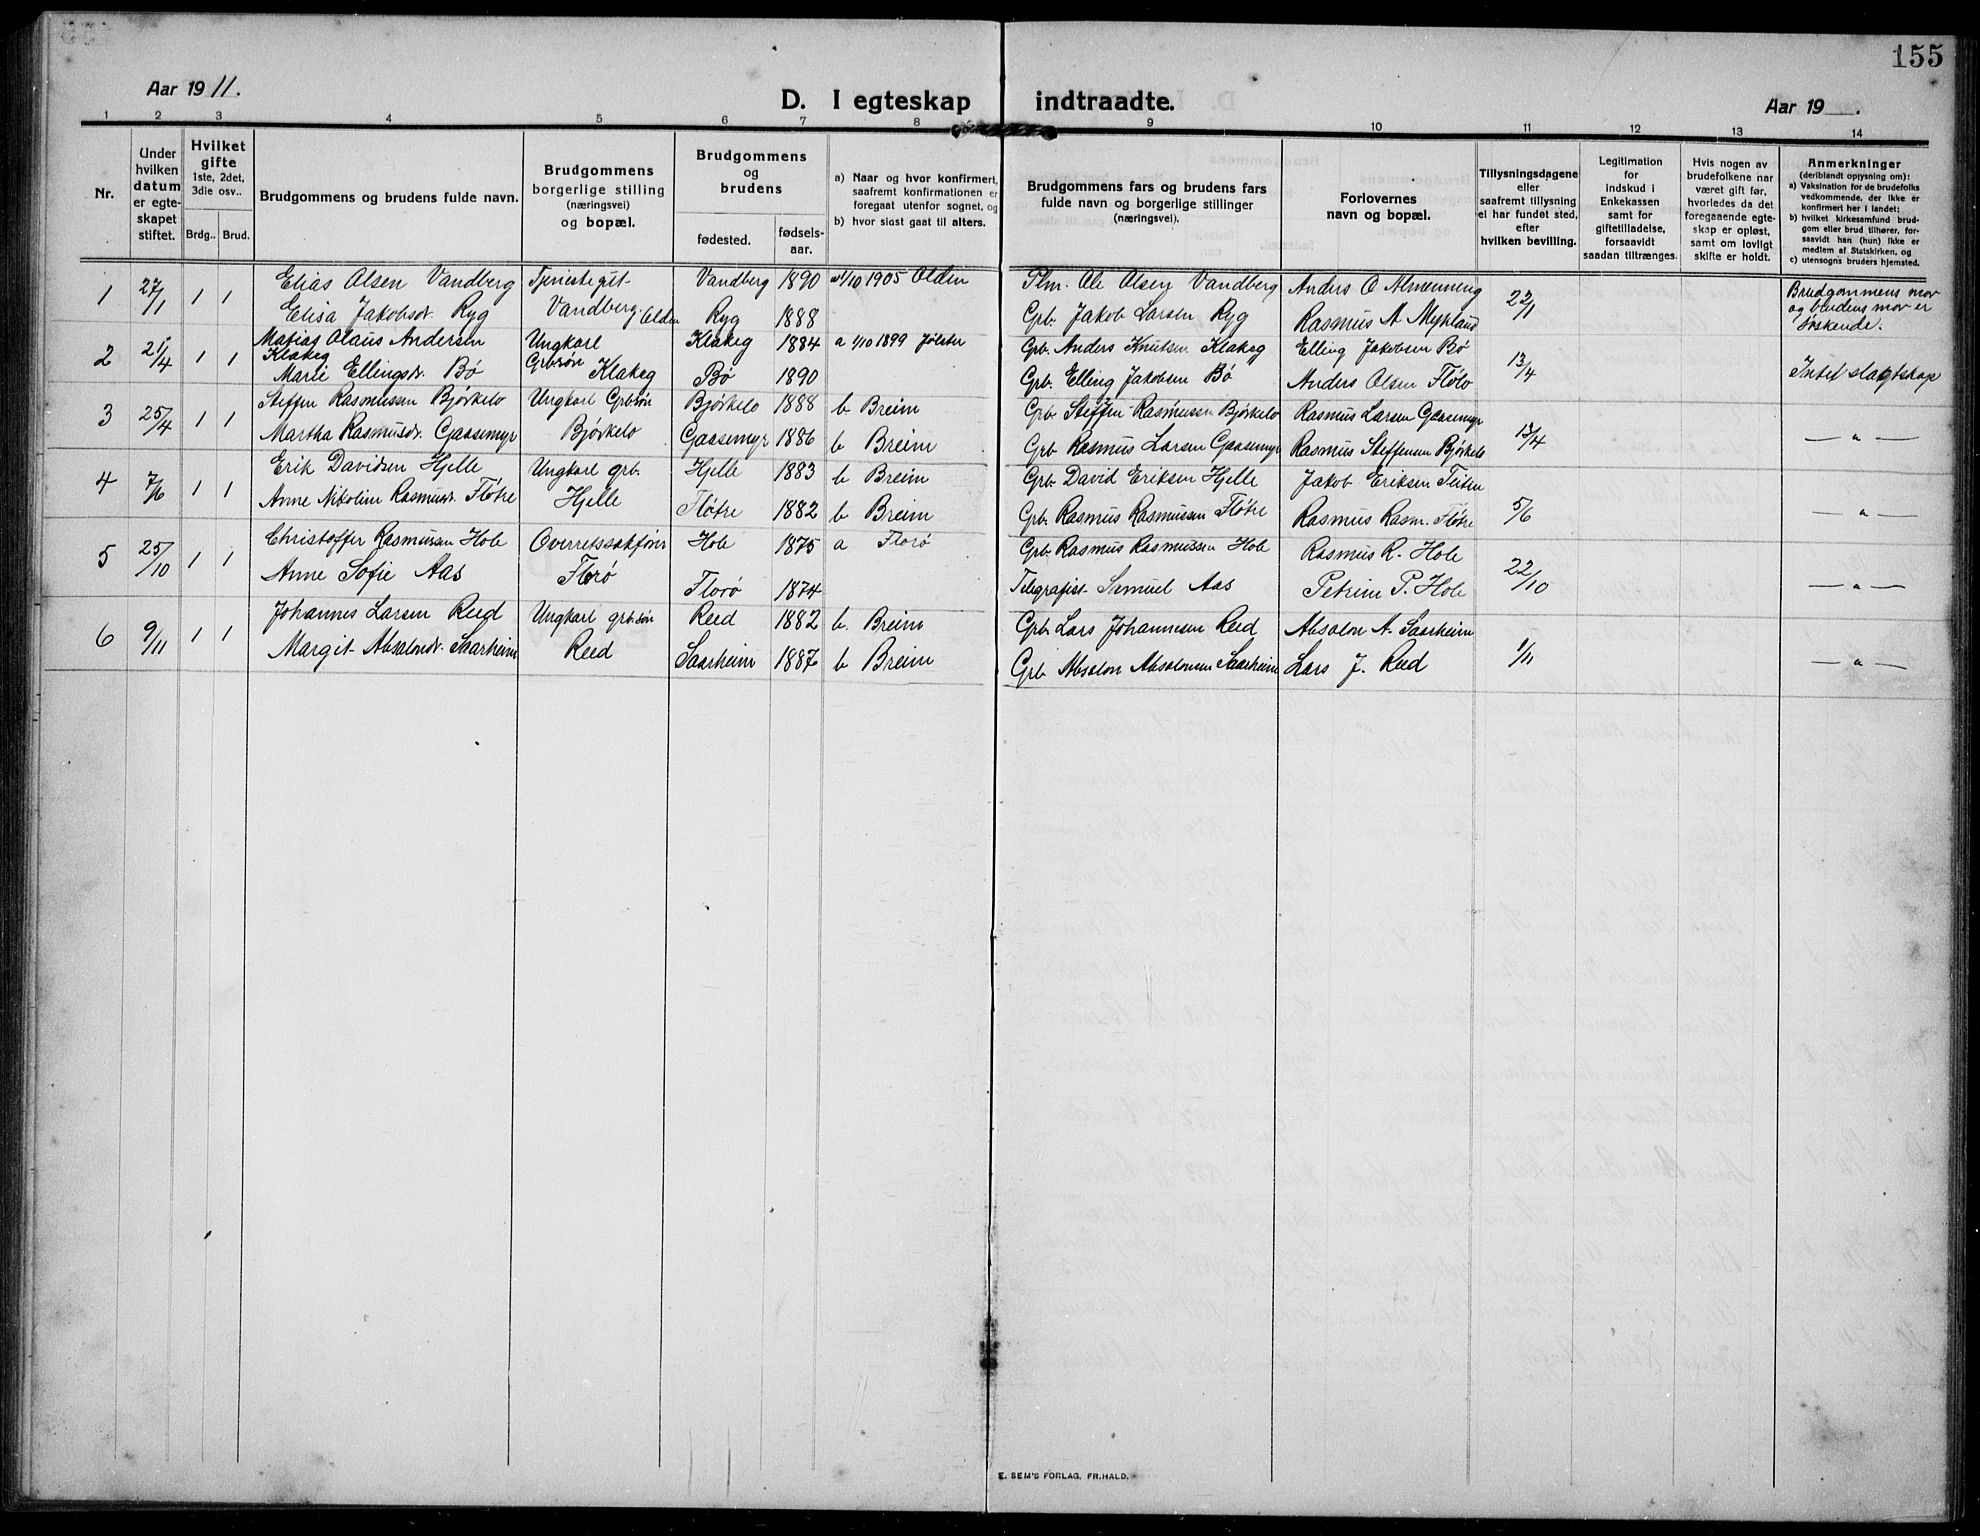 155
Aar 1911.
D. I egteskap indtraadte.
Aar 19 .
1 2 3 4 5 6 7 8 9 10 11 12 13 14
Nr.
Under hvilken datum er egteskapet stiftet.
Hvilket gifte 1ste, 2det, 3die osv..
Brdg.. Brud.
Brudgommens og brudens fulde navn.
Brudgommens borgerlige stilling (næringsvei) og bopæl.
Brudgommens og brudens
fødested.
fødselsaar.
a) Naar og hvor konfirmert, saafremt konfirmationen er foregaat utenfor sognet, og
b) hvor sidst gaat til alters.
Brudgommens fars og brudens fars fulde navn og borgerlige stillinger (næringsvei).
Forlovernes navn og bopæl.
Tillysningsdagene eller saafremt tillysning ei har fundet sted, efter hvilken bevilling.
Legitimation for indskud i Enkekassen samt for giftetilladelse, forsaavidt saadan tiltrænges.
Hvis nogen av brudefolkene har været gift før, hvorledes da det foregaaende egteskap er opløst, samt om lovligt skifte er holdt.
Anmerkninger (deriblandt oplysning om):
a) Vaksination for de brudefolks vedkommende, der ikke er konfirmert her i landet;
b) hvilket kirkesamfund brudgom eller brud tilhører, forsaavidt han (hun) ikke er medlem af Statskirken, og
c) utensogns bruders hjemsted.
1 27/1 1 1 Elias Olsen Vandberg Tjenestegut Vandberg 1890 a 1/10 1905 Olden Plm. Ole Olsen Vandberg Anders O Almenning 22/1 Brudgommens mor og brudens mor er søskende.
Elisa Jakobsdr. Ryg Vandberg. Olden Ryg 1888 Grb. Jakob Larsen Ryg Rasmus A Myklaud
2 21/4 1 1 Matias Olaus Andersen Klakeg Ungkarl Grbsøn Klakeg 1884 a 1/10 1899 Jølster Grb. Anders Knutsen Klakeg Elling Jakobsen Bø 13/4 Intet slagtskap
Marie Ellingsdr. Bø Klakeg Bø 1890 Grb. Elling Jakobsen Bø Anders Olsen Fløto
3 25/4 1 1 Steffen Rasmussen Bjørkelo Ungkarl Grbsøn Bjørkelo 1888 b Breim Grb Steffen Rasmussen Bjørkelo Rasmus Larsen Gaasemyr 13/4 — " —
Martha Rasmusdr. Gaasemyr Bjørkelo Gaasemyr 1886 b Breim Grb Rasmus Larsen Gaasemyr Rasmus Steffensen Bjørkelo
4 7/6 1 1 Erik Davidsen Hjelle Ungkarl grb. Hjelle 1883 b Breim Grb David Eriksen Hjelle Jakob Eriksen Feiten 5/6 — " —
Anne Nikoline Rasmusdr. Fløtre Hjelle Fløtre 1882 b Breim Grb. Rasmus Rasmussen Fløtre Rasmus Rasm. Fløtre
5 25/10 1 1 Christoffer Rasmussen Hole Overretssakfører Hole 1875 a Florø Grb. Rasmus Rasmussen Hole Rasmus R. Hole 22/10 — " —
Anne Sofie Aas Florø Florø 1874 Telegrafist Samuel Aas Petrine P. Hole
6 9/11 1 1 Johannes Larsen Reed Ungkarl grb.søn Reed 1882 b. Breim Grb. Lars Johannesen Reed Absalon A. Saarheim 1/11 — " —
Margit Absalonsdr. Saarheim Reed Saarheim 1887 b Breim Grb Absalon Absalonsen Saarheim Lars J. Reed
E. SEM'S FORLAG, FR.HALD.